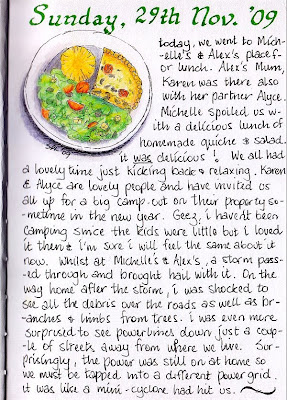 Sunday, 29th Nov. '09
today, we went to Mich-
elle's & Alex's place f-
or lunch. Alex's Mum,
Karen was there also
with her partner Alyce.
Michelle spoiled us w-
ith a delicious lunch of
homemade quiche & salad.
it was delicious! We all had
a lovely time just kicking back & relaxing. Karen
& Alyce are lovely people and have invited us
all up for a big camp-out on their property so-
metime in the new year. Geez, i haven't been
camping since the kids were little but i loved
it then & i'm sure i will feel the same about it
now. Whilst at Michelle's & Alex's, a storm pass-
ed through and brought hail with it. On the
way home after the storm, i was shocked to
see all the debris over the roads as well as br-
anches & limbs from trees. i was even more
surprised to see powerlines down just a coup-
le of streets away from where we live. Sur-
prisingly, the power was still on at home so
we must be tapped into a different power grid.
it was like a mini-cyclone had hit us.